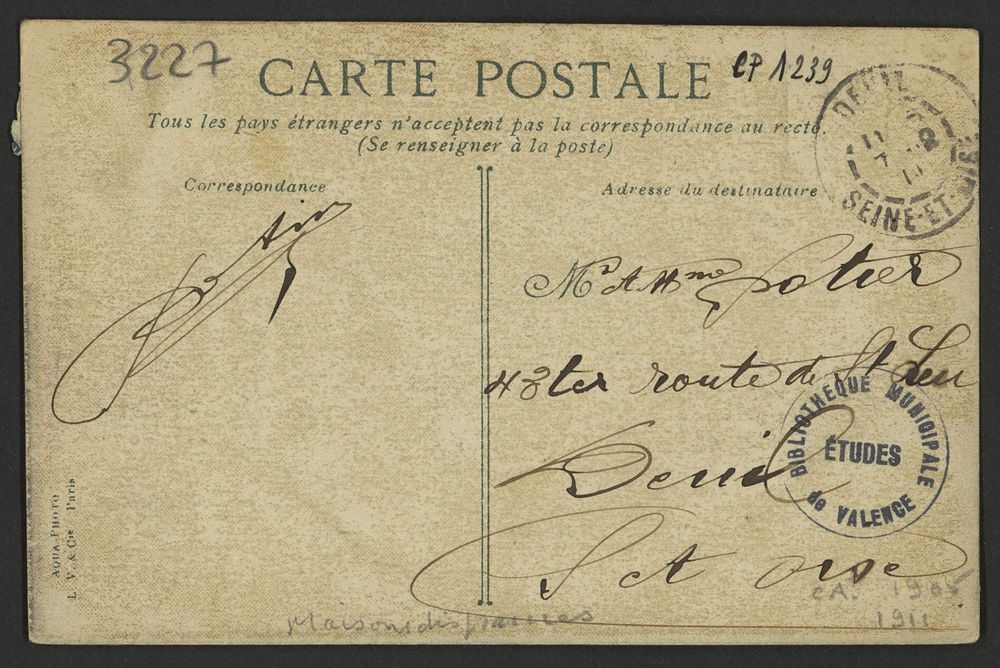 3227
CARTE POSTALE
CP 1239
Tous les pays étrangers n'acceptent pas la correspondance au recto.
(Se renseigner à la poste)
Correspondance
Adresse du destinataire
DEUIL
SEINE-ET-OISE
Mr & Mme Potier
43 ter route de St Leu
Deuil
S et Oise
BIBLIOTHEQUE MUNICIPALE
ÉTUDES
de VALENCE
AQUA-PHOTO
L. V. & Cie Paris
CA. 1905
1911